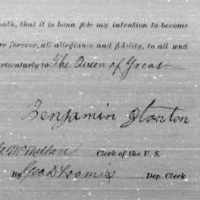 oath, that it is bona fide my intention to become
forever, all allegiance and fidelity, to all and
particularly to The Queen of Great
Benjamin Stanton
McMillan Clerk of the U. S.
By Geo D Loomis Dep. Clerk